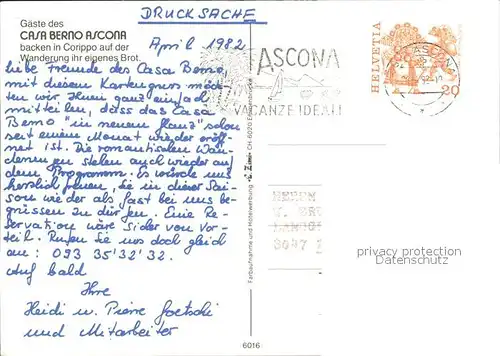 DRUCKSACHE
Gäste des
CASA BERNO ASCONA
backen in Corippo auf der
Wanderung ihr eigenes Brot.
April 1982
liebe Freunde des Casa Berno,
mit diesem Kartengruss möch-
ten wir Ihnen ganz einfach
mitteilen, dass das Casa
Berno "in neuem Glanz" schon
seit einem Monat wieder eröff-
net ist. Die romantischen Wan-
derungen stehen auch wieder auf
dem Programm. Es würde uns
herzlich freuen, Sie in dieser Sai-
son wieder als Gast bei uns be-
grüssen zu dürfen. Eine Re-
servation wäre sicher von Vor-
teil. Rufen Sie uns doch gleich
an: 093 35'32'32.
Auf bald
Ihre
Heidi u. Pierre Goetschi
und Mitarbeiter
ASCONA
VACANZE IDEALI
HELVETIA
20
ASCONA
Farbaufnahme und Hotelwerbung
CH-6020
HERRN
privacy protection
Datenschutz
6016